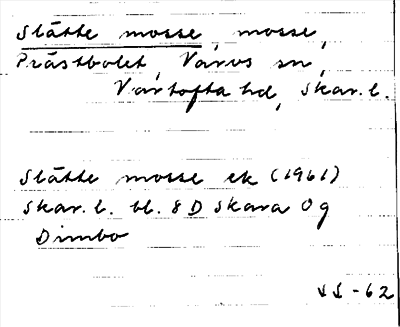 Slätte mosse, mosse,
Prästbolet, Varvs sn,
Vartofta hd, Skar. l.
Slätte mosse ek (1961)
Skar. l. bl. 8 D Skara 0g
Dimbo
-62